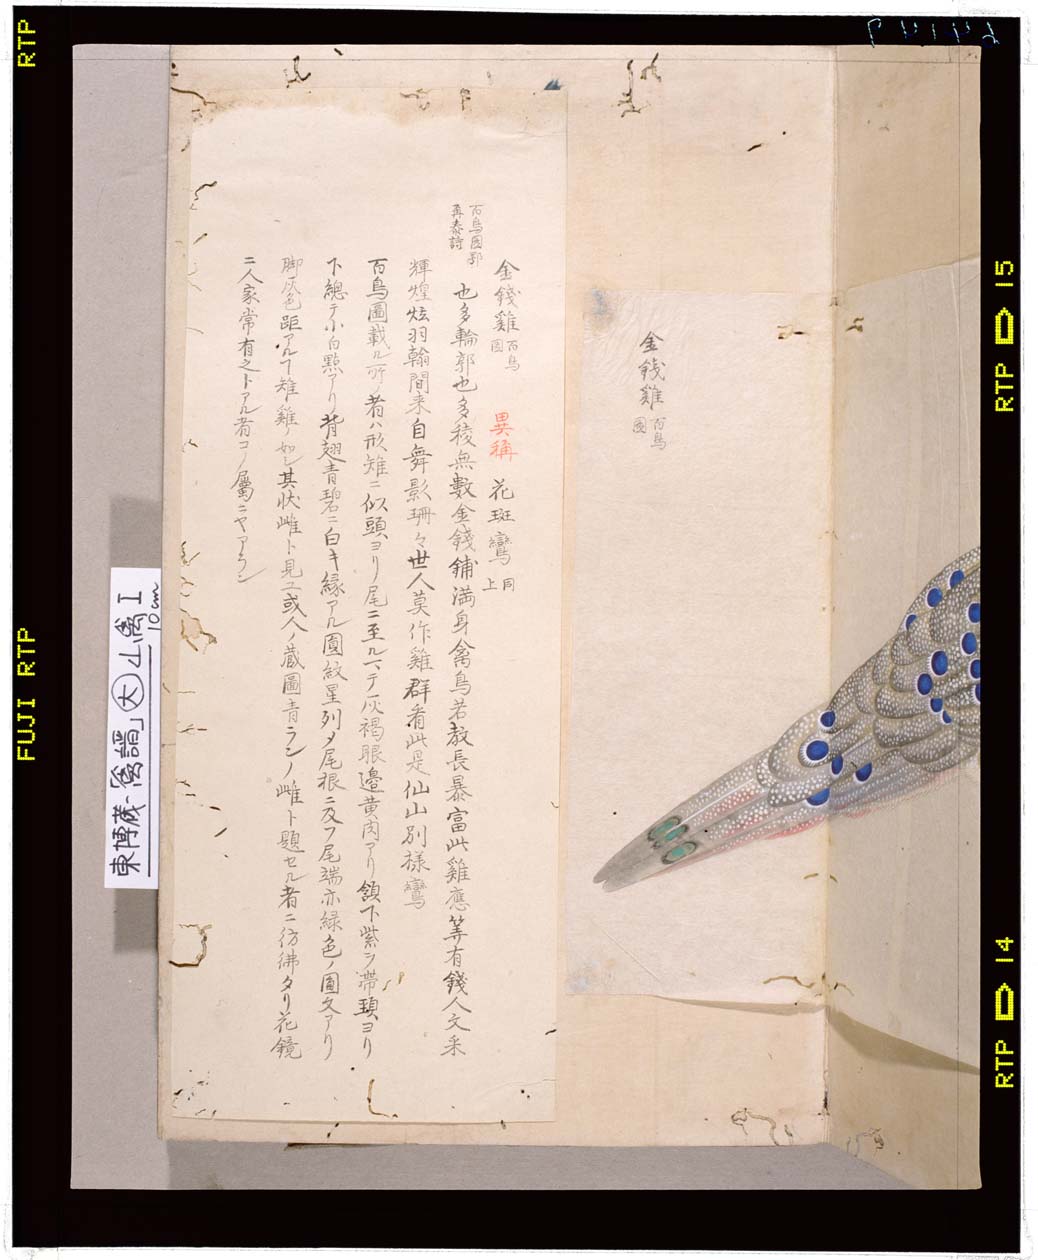 金錢雞 百鳥圖
金錢雞 百鳥圖 異稱 花斑鸞 同上
百鳥圖鄒
再泰詩
也多輪郭也多稜無數金錢鋪満身禽鳥若教長暴富此雞應筭有錢人文采
輝煌炫羽翰間来自舞影珊々世人莫作雞群看此是仙山別様鸞
百鳥圖載ル所ノ者ハ形雉ニ似頭ヨリ尾ニ至ルマテ灰褐眼邉黄肉アリ頷下紫ヲ帯頸ヨリ
下總テ小白㸃アリ背翅青碧ニ白キ縁アル圓紋星列メ尾根ニ及フ尾端亦緑色ノ圓文アリ
脚灰色距アルヿ雉雞ノ如シ其状雌ト見ユ或人ノ蔵圖青ランノ雌ト題セル者ニ彷彿タリ花鏡
ニ人家常有之トアル者コノ屬ニヤアラン
東博蔵「禽譜」大 山禽 I
10cm
RTP
FUJI RTP
RTP 15
RTP 14